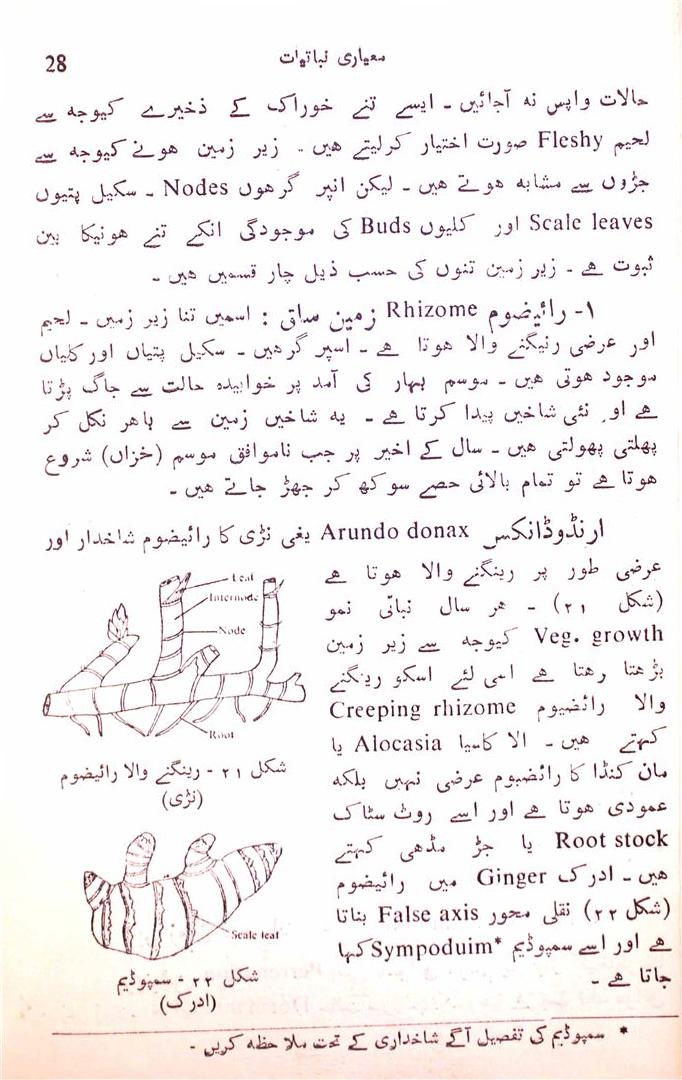 معیاری نباتیات
28
حالات واپس نہ آجائیں ۔ ایسے تنے خوراک کے ذخیرے کیوجہ سے
لحیم Fleshy صورت اختیار کرلیتے ہیں ۔ زیر زمین ہونے کیوجہ سے
جڑوں سے مشابہ ہوتے ہیں ۔ لیکن انپر گرہوں Nodes ۔ سکیل پتیوں
Scale leaves اور کلیوں Buds کی موجودگی انکے تنے ہونیکا بین
ثبوت ہے ۔ زیر زمین تنوں کی حسب ذیل چار قسمیں ہیں ۔
۱- رائیضوم Rhizome زمین ساق : اسمیں تنا زیر زمیں ۔ لحیم
اور عرضی رنیگنے والا ہوتا ہے ۔ اسپر گرہیں ۔ سکیل پتیاں اور کلیاں
موجود ہوتی ہیں ۔ موسم بہار کی آمد پر خوابیدہ حالت سے جاگ پڑتا
ہے او ر نئی شاخیں پیدا کرتا ہے ۔ یہ شاخیں زمین سے باہر نکل کر
پھلتی پھولتی ہیں ۔ سال کے اخیر پر جب ناموافق موسم (خزاں) شروع
ہوتا ہے تو تمام بالائی حصے سوکھ کر جھڑ جاتے ہیں ۔
ارنڈوڈانکس Arundo donax یغی نڑی کا رائیضوم شاخدار اور
عرضی طور پر رینگنے والا ہوتا ہے
(شکل ۲۱) ۔ ہر سال نباتی نمو
Veg. growth کیوجہ سے زیر زمین
بڑھتا رہتا ہے اسی لئے اسکو رینگنے
والا رائضیوم Creeping rhizome
کہتے ہیں ۔ الا کاسیا Alocasia یا
مان کنڈا کا رائضیوم عرضی نہیں بلکہ
عمودی ہوتا ہے اور اسے روٹ سٹاک
Root stock یا جڑ مڈھی کہتے
ہیں ۔ ادرک Ginger میں رائیضوم
(شکل ۲۲) نقلی محور False axis بناتا
ہے اور اسے سمپوڈیم *Sympoduim کہا
جاتا ہے ۔
Leaf
Internode
Node
Root
شکل ۲۱ - رینگنے والا رائیضوم
(نڑی)
Scale leaf
شکل ۲۲ - سمپوڈیم
(ادرک)
* سمپوڈیم کی تفصیل آگے شاخداری کے تحت ملاحظہ کریں ۔